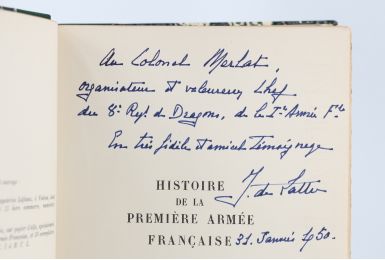 Au Colonel Merlat,
organisateur et valeureux Chef
du 8e Regt de Dragons, de la 1re Armée Fse
En très fidèle et amical témoignage
J. de Lattre
HISTOIRE
DE LA
PREMIÈRE ARMÉE
FRANÇAISE
31. Janvier 1950.